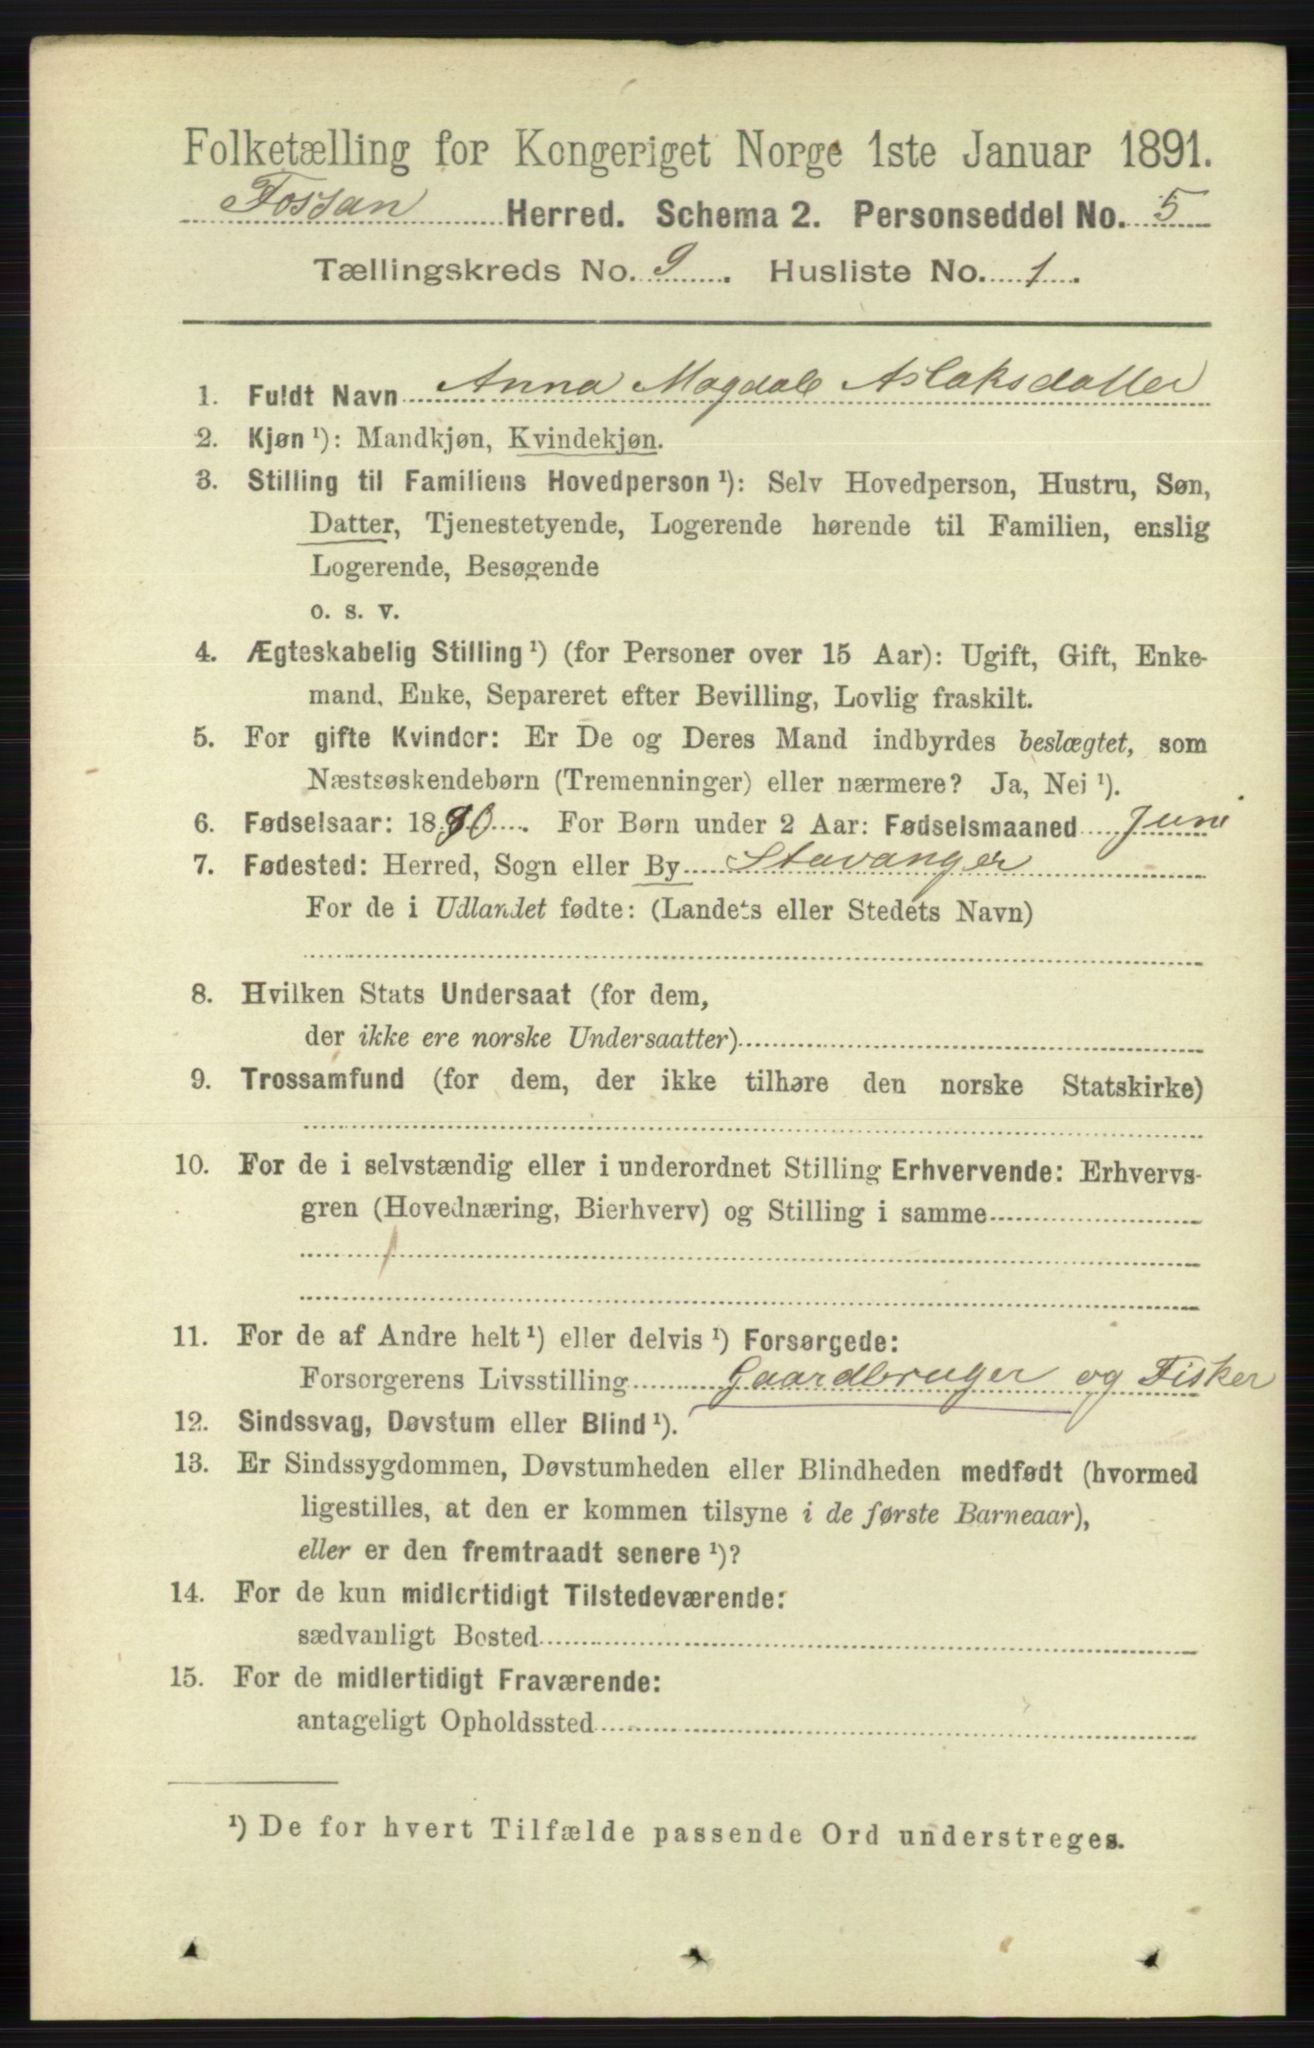 Folketælling for Kongeriget Norge 1ste Januar 1891.
Fossan Herred. Schema 2. Personseddel No. 5
Tællingskreds No. 9. Husliste No. 1.
1. Fuldt Navn Anna Magdale Aslaksdatter
2. Kjøn ¹): Mandkjøn, Kvindekjøn.
3. Stilling til Familiens Hovedperson ¹): Selv Hovedperson, Hustru, Søn,
Datter, Tjenestetyende, Logerende hørende til Familien, enslig
Logerende, Besøgende
o. s. v.
4. Ægteskabelig Stilling ¹) (for Personer over 15 Aar): Ugift, Gift, Enke-
mand, Enke, Separeret efter Bevilling, Lovlig fraskilt.
5. For gifte Kvinder: Er De og Deres Mand indbyrdes beslægtet, som
Næstsøskendebørn (Tremenninger) eller nærmere? Ja, Nei ¹).
6. Fødselsaar: 1890. For Børn under 2 Aar: Fødselsmaaned Juni
7. Fødested: Herred, Sogn eller By Stavanger
For de i Udlandet fødte: (Landets eller Stedets Navn)
8. Hvilken Stats Undersaat (for dem,
der ikke ere norske Undersaatter)
9. Trossamfund (for dem, der ikke tilhøre den norske Statskirke)
10. For de i selvstændig eller i underordnet Stilling Erhvervende: Erhvervs-
gren (Hovednæring, Bierhverv) og Stilling i samme
11. For de af Andre helt ¹) eller delvis ¹) Forsørgede:
Forsørgerens Livsstilling Gaardbruger og Fisker
12. Sindssvag, Døvstum eller Blind ¹).
13. Er Sindssygdommen, Døvstumheden eller Blindheden medfødt (hvormed
ligestilles, at den er kommen tilsyne i de første Barneaar),
eller er den fremtraadt senere ¹)?
14. For de kun midlertidigt Tilstedeværende:
sædvanligt Bosted
15. For de midlertidigt Fraværende:
antageligt Opholdssted
¹) De for hvert Tilfælde passende Ord understreges.